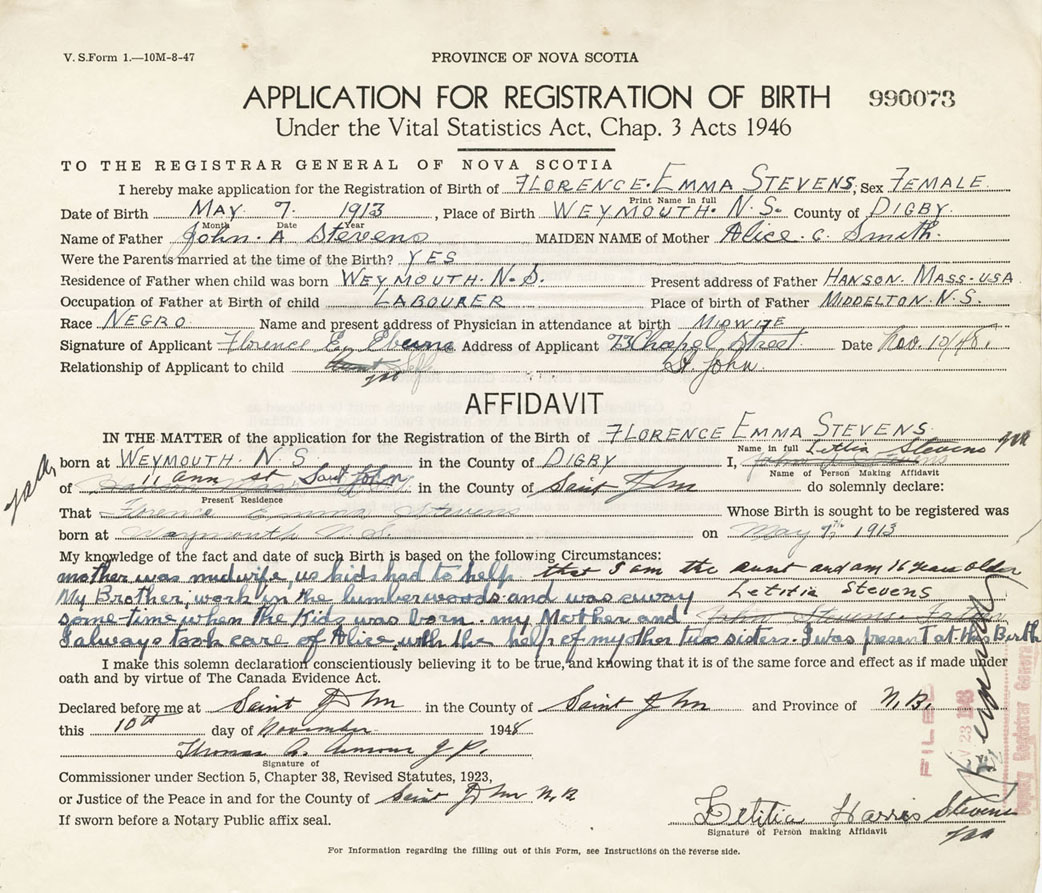 V. S.Form 1.—10M-8-47
PROVINCE OF NOVA SCOTIA
APPLICATION FOR REGISTRATION OF BIRTH 990073
Under the Vital Statistics Act, Chap. 3 Acts 1946
TO THE REGISTRAR GENERAL OF NOVA SCOTIA
I hereby make application for the Registration of Birth of FLORENCE. EMMA STEVENS, Sex FEMALE.
Print Name in full
Date of Birth MAY 7. 1913, Place of Birth WEYMOUTH. N.S. County of DIGBY.
Month Date Year
Name of Father John. A Stevens MAIDEN NAME of Mother Alice. C. Smith.
Were the Parents married at the time of the Birth? YES
Residence of Father when child was born WEYMOUTH. N.S. Present address of Father HANSON. MASS-USA
Occupation of Father at Birth of child LABOURER Place of birth of Father MIDDELTON. N.S.
Race NEGRO Name and present address of Physician in attendance at birth MIDWIFE
Signature of Applicant Florence E. Address of Applicant 73 Chapel Street. Date Nov. 10/48.
Relationship of Applicant to child Self St. John.
AFFIDAVIT
IN THE MATTER of the application for the Registration of the Birth of FLORENCE EMMA STEVENS
Name in full Letitia Stevens
born at WEYMOUTH. N.S in the County of DIGBY I,
Name of Person Making Affidavit
of 11 Ann st Saint John in the County of Saint John do solemnly declare:
Present Residence
That Florence Emma Stevens Whose Birth is sought to be registered was
born at Weymouth N.S. on May 7th 1913
My knowledge of the fact and date of such Birth is based on the following Circumstances:
mother was midwife, us kids had to help. that I am the aunt and am 16 years older
My Brother, work in the lumberwoods and was away Letitia Stevens
some time when the Kids was Born. my Mother and John Stevens
I always took care of Alice, with the help of my other two sisters. I was present at this Birth
I make this solemn declaration conscientiously believing it to be true, and knowing that it is of the same force and effect as if made under
oath and by virtue of The Canada Evidence Act.
Declared before me at Saint John in the County of Saint John and Province of N.B.
this 10th day of November 1948
Thomas J.P.
Signature of
Commissioner under Section 5, Chapter 38, Revised Statutes, 1923,
or Justice of the Peace in and for the County of Saint John N.B
If sworn before a Notary Public affix seal.
Letitia Harris Stevens
Signature of Person making Affidavit
FILED
NOV 23 1948
Deputy Registrar General
For Information regarding the filling out of this Form, see Instructions on the reverse side.